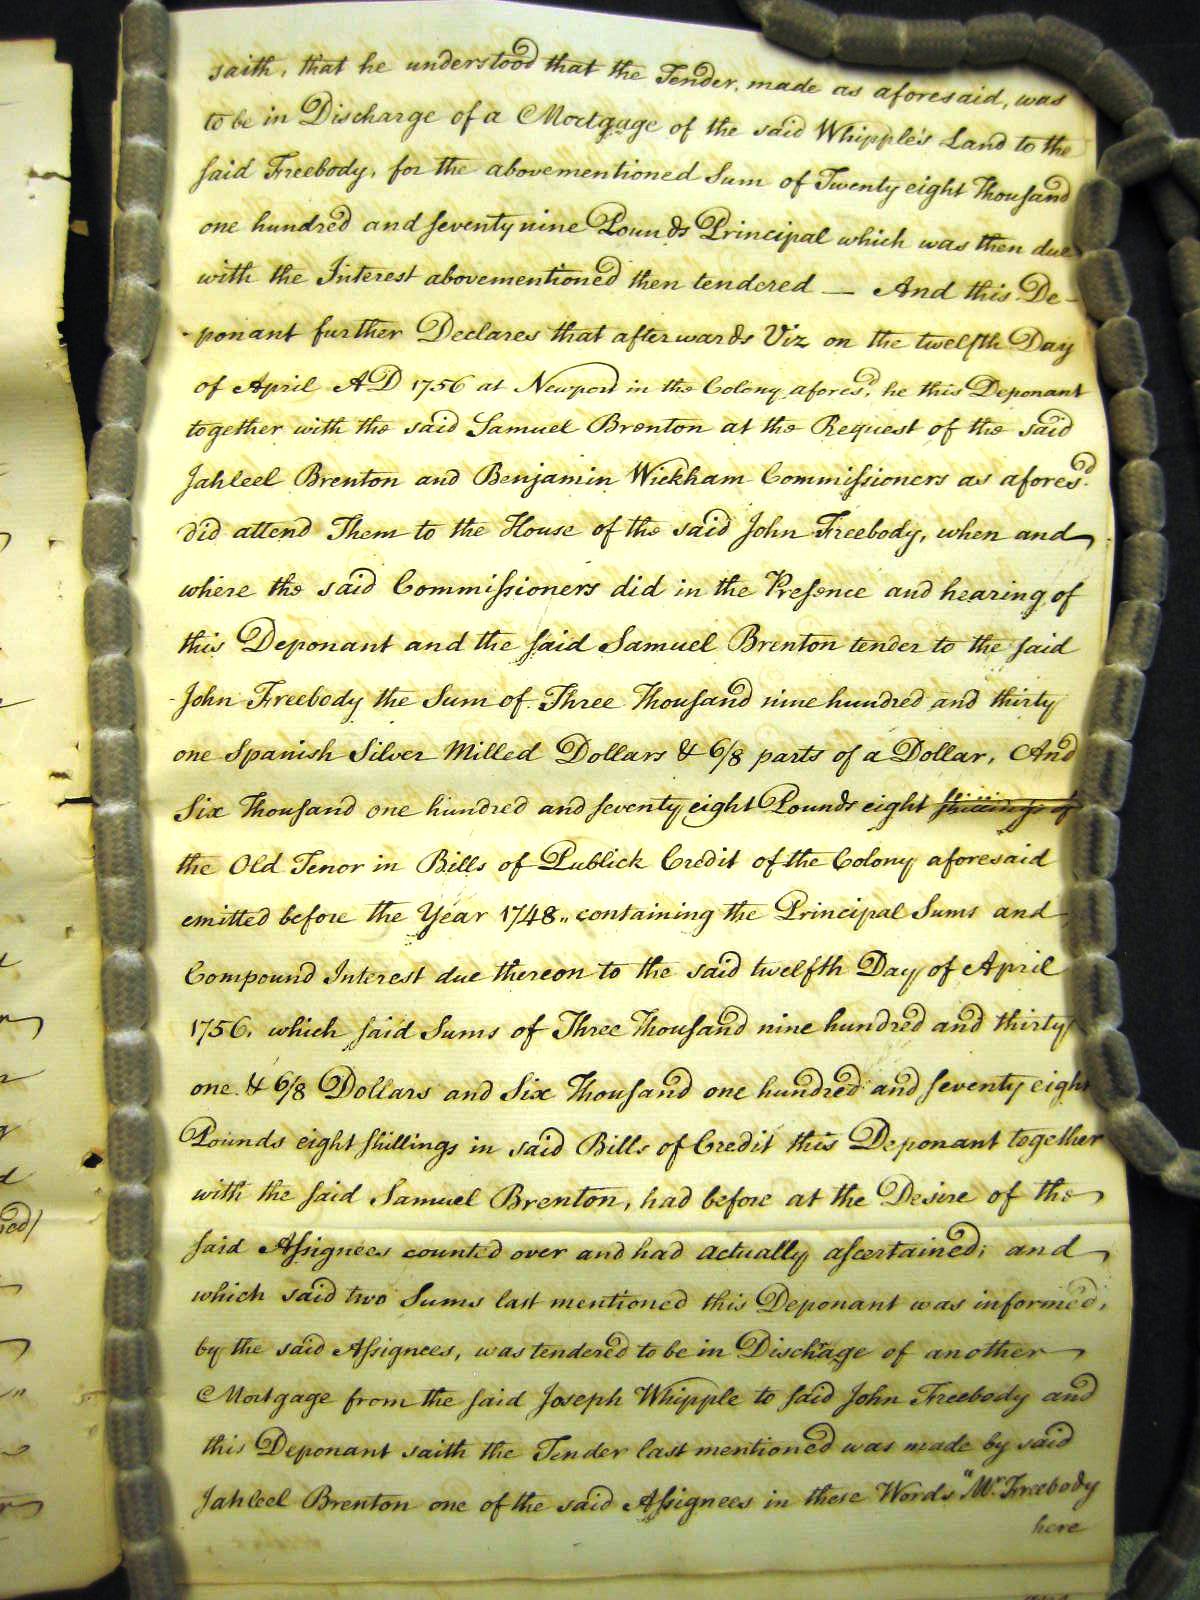 saith, that he understood that the Tender, made as aforesaid, was
to be in Discharge of a Mortgage of the said Whipple's Land to the
said Freebody, for the abovementioned Sum of Twenty eight Thousand
one hundred and seventy nine Pounds Principal which was then due
with the Interest abovementioned then tendered — And this De-
-ponant further Declares that afterwards Viz on the twelfth Day
of April AD 1756 at Newport in the Colony afores.d he this Deponant
together with the said Samuel Brenton at the Request of the said
Jahleel Brenton and Benjamin Wickham Commissioners as afores.d
did attend Them to the House of the said John Freebody, when and
where the said Commissioners did in the Presence and hearing of
this Deponant and the said Samuel Brenton tender to the said
John Freebody the Sum of Three Thousand nine hundred and thirty
one Spanish Silver Milled Dollars & 6/8 parts of a Dollar, And
Six Thousand one hundred and seventy eight Pounds eight shillings of
the Old Tenor in Bills of Publick Credit of the Colony aforesaid
emitted before the Year 1748,, containing the Principal Sums and
Compound Interest due thereon to the said twelfth Day of April
1756, which said Sums of Three Thousand nine hundred and thirty
one & 6/8 Dollars and Six Thousand one hundred and seventy eight
Pounds eight shillings in said Bills of Credit this Deponant together
with the said Samuel Brenton, had before at the Desire of the
said Assignees counted over and had actually ascertained; and
which said two Sums last mentioned this Deponant was informed,
by the said Assignees, was tendered to be in Dischage of another
Mortgage from the said Joseph Whipple to said John Freebody and
this Deponant saith the Tender last mentioned was made by said
Jahleel Brenton one of the said Assignees in these Words "Mr. Freebody
here